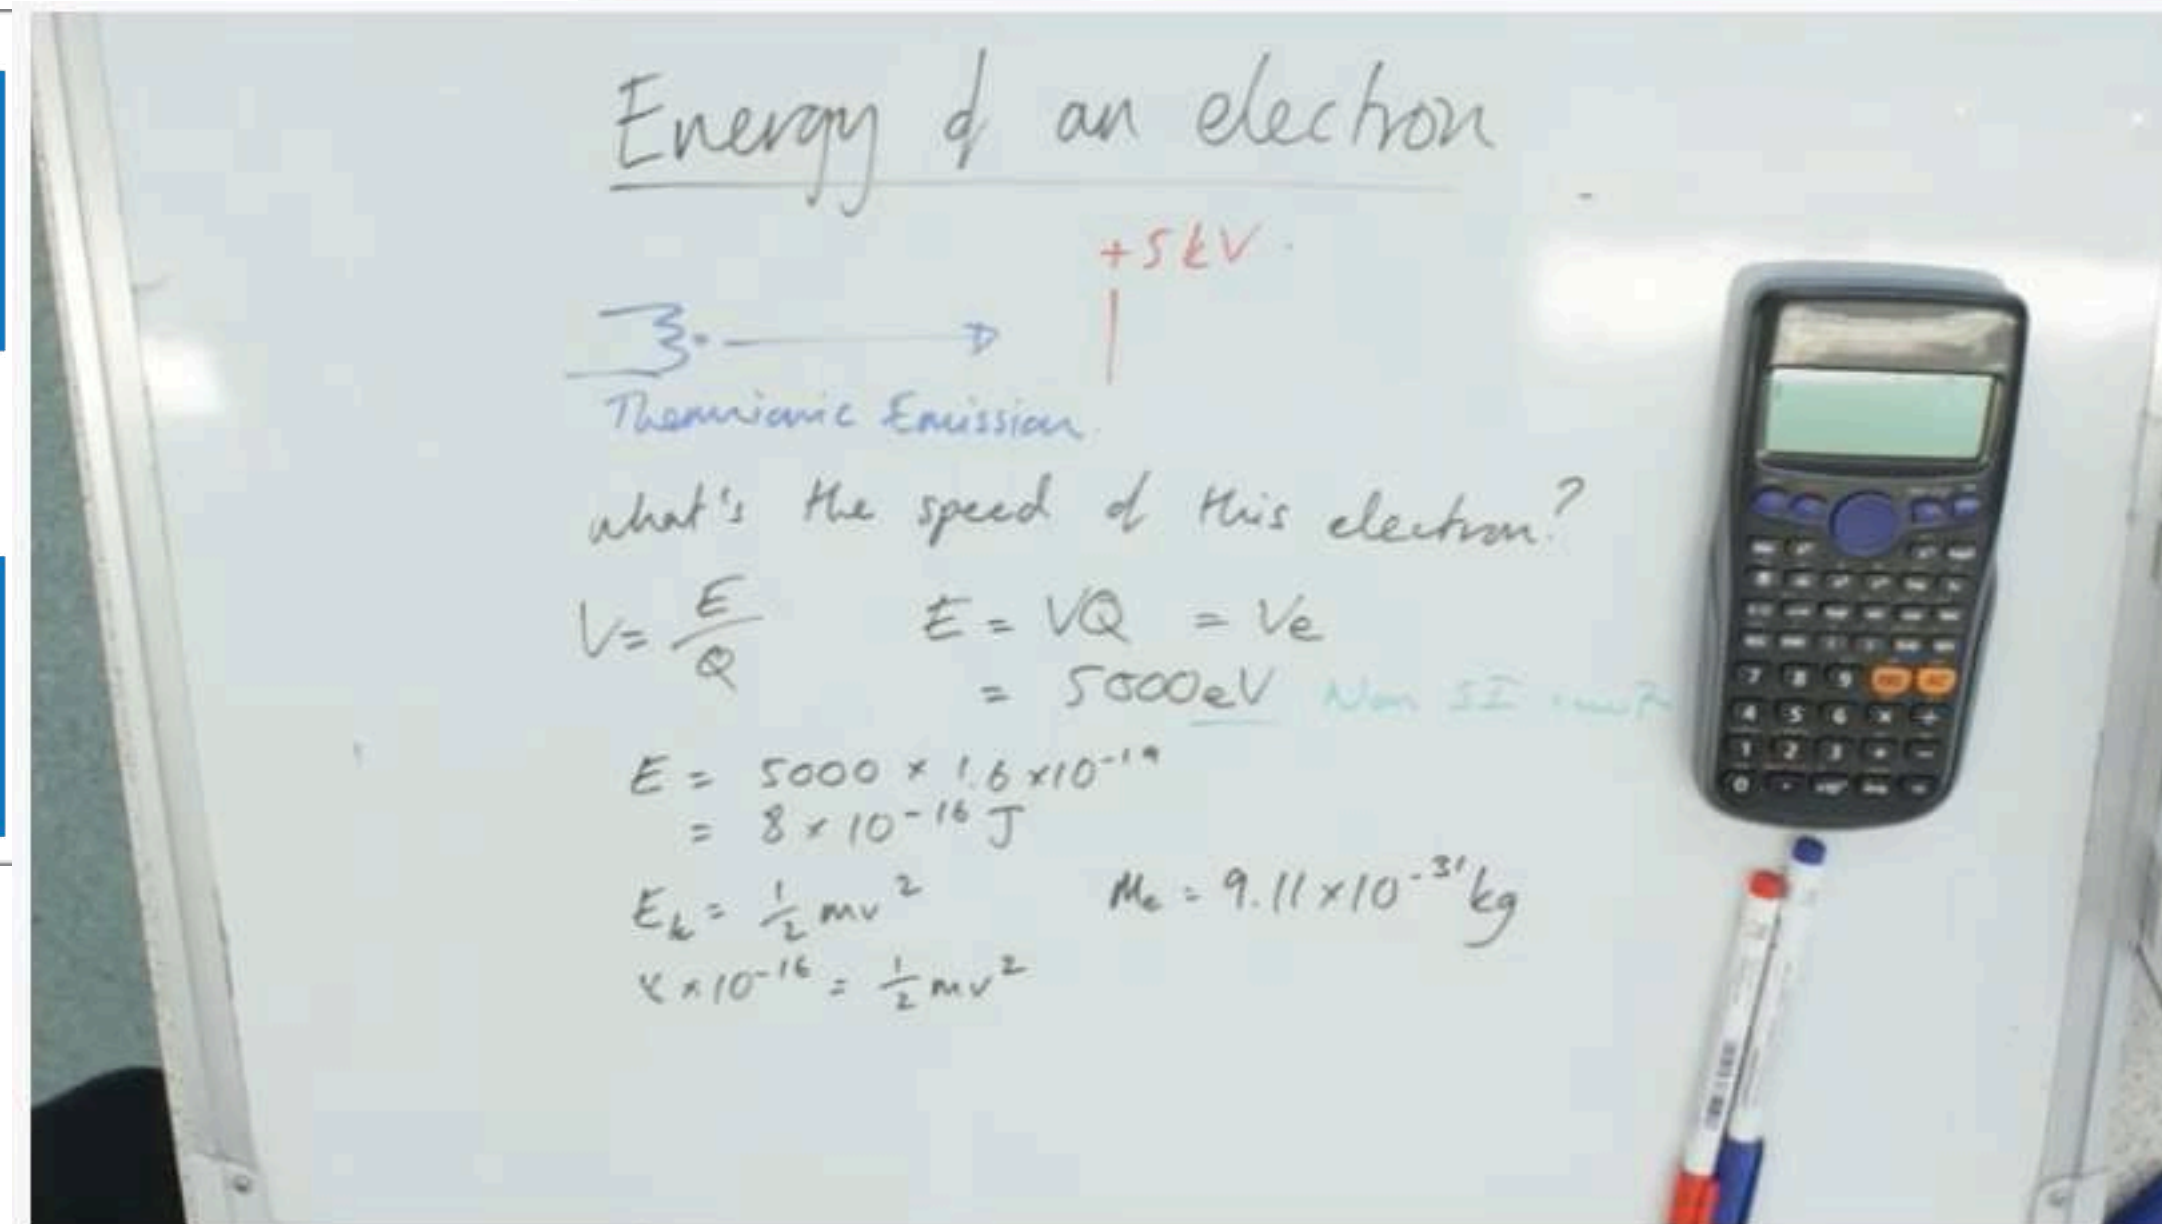 Energy of an electron
+5kV
Thermionic Emission.
what's the speed of this electron?
V = E/Q E = VQ = Ve
= 5000eV Non SI
E = 5000 × 1.6 × 10⁻¹⁹
= 8 × 10⁻¹⁶ J
Eₖ = ½ mv² Mₑ = 9.11 × 10⁻³¹ kg
8 × 10⁻¹⁶ = ½ mv²
7 8 9
4 5 6 × ÷
1 2 3 + −
0 . =